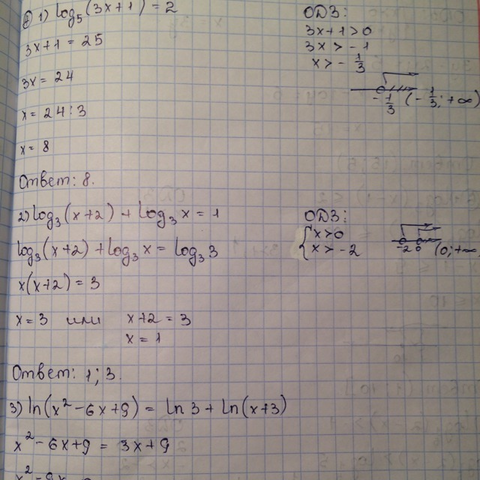 б) 1) log₅(3x+1) = 2
3x+1 = 25
3x = 24
x = 24 : 3
x = 8
Ответ: 8.
ОДЗ:
3x+1>0
3x > -1
x > - 1/3
- 1/3 (- 1/3; +∞)
2) log₃(x+2) + log₃ x = 1
log₃(x+2) + log₃ x = log₃ 3
x(x+2) = 3
x = 3 или x+2 = 3
x = 1
Ответ: 1; 3.
ОДЗ:
{ x>0
x > -2
-2 0 (0; +∞
3) ln(x² - 6x + 9) = ln 3 + ln(x+3)
x² - 6x + 9 = 3x + 9